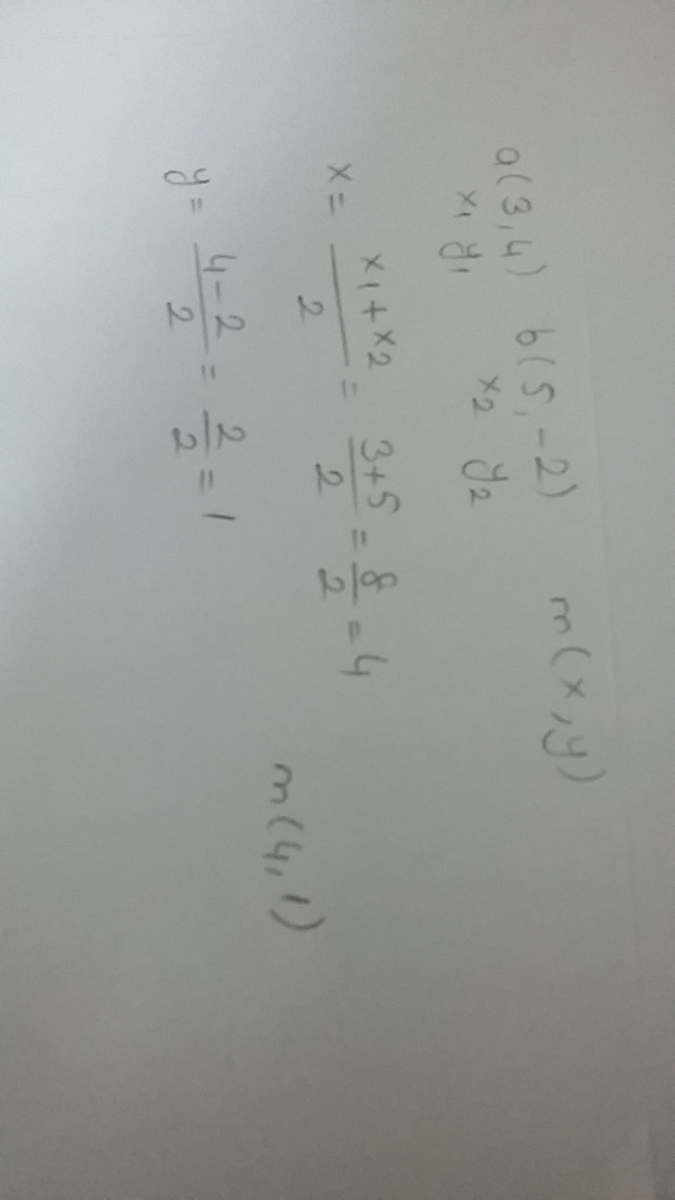 a(3,4) b(5,-2) m(x,y)
x₁ y₁ x₂ y₂
x = x₁+x₂/2 = 3+5/2 = 8/2 = 4
m(4,1)
y = 4-2/2 = 2/2 = 1